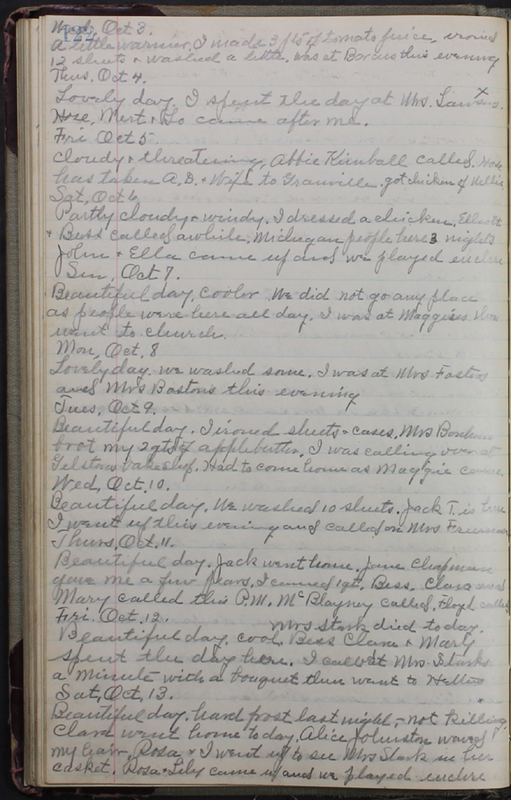 Wed, Oct 3.
A little warmer, I made 3 pts of tomato juice, ironed
12 sheets & washed a little, was at Bordens this evening
Thus, Oct 4.
Lovely day. I spent the day at Mrs. Lawsons.
Hose, Mert & Lo came after me.
Fri Oct 5.
Cloudy & threatening, Abbie Kimball called.
has taken A.D. & Wife to Granville. got chicken of Nellie
Sat, Oct 6
Partly cloudy & windy. I dressed a chicken, Elliott
& Bess called awhile. Michigan people here 3 nights
John & Ella came up and we played euchre
Sun, Oct 7.
Beautiful day, cooler We did not go any place
as people were here all day. I was at Maggies.
went to church.
Mon, Oct, 8
Lovely day. we washed some. I was at Mrs Fosters
and Mrs Bastons this evening
Tues, Oct 9.
Beautiful day. I ironed sheets & cases. Mrs
brot my 2 qts of applebutter. I was calling over at
Had to come home as Maggie came
Wed, Oct. 10.
Beautiful day. We washed 10 sheets. Jack T. is here
I went up this evening and called on Mrs Freeman
Thurs, Oct. 11.
Beautiful day. Jack went home. Jane Chapman
gave me a few pears. I canned 1 qt. Bess, Clara and
Mary called this P.M. McBlayney called, Floyd called
Mrs Stark died today.
Fri. Oct. 12.
Beautiful day, cool, Bess Clara & Mary
spent the day here. I called at Mrs. Starks
a minute with a bouquet then went to Nellies
Sat, Oct, 13.
Beautiful day. hard frost last night, - not killing
Clara went home to day. Alice Johnston waved
my hair. Rosa & I went up to see Mrs Stark in her
casket. Rosa & Lily came up and we played euchre